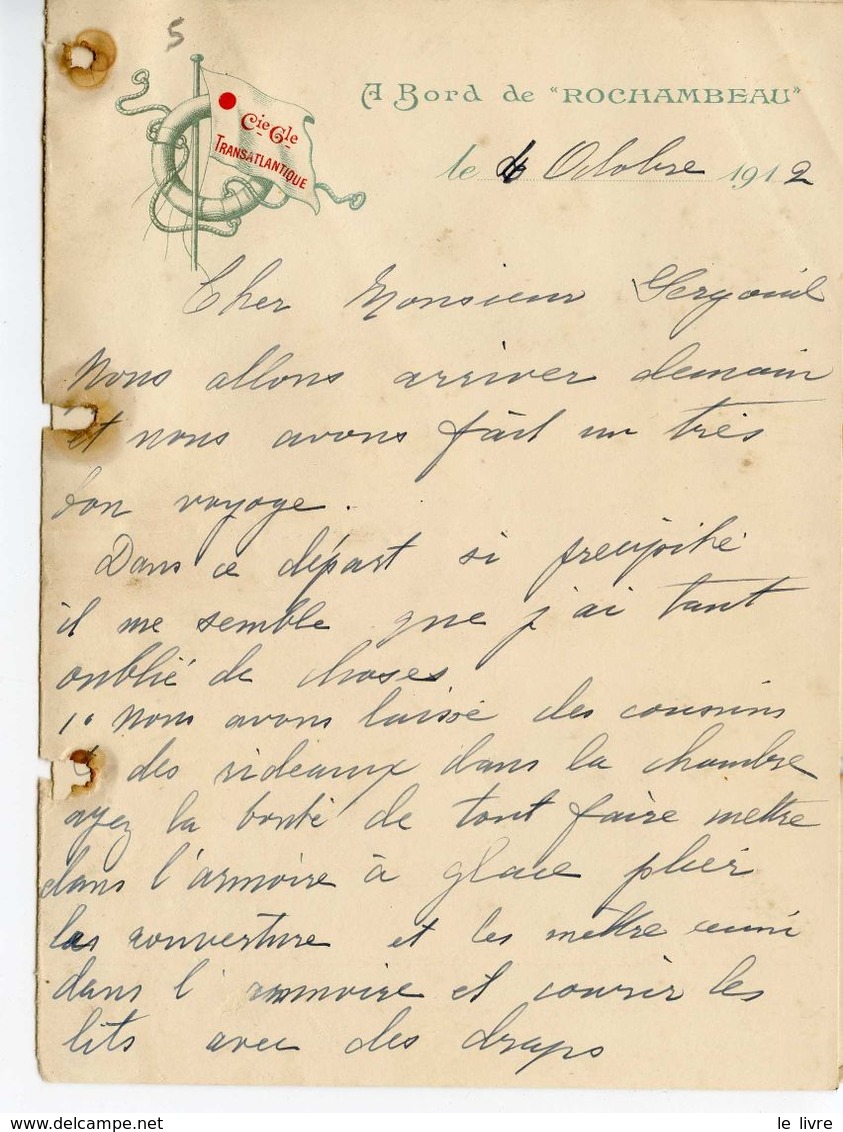 5
Cie Gle
TRANSATLANTIQUE
A Bord de "ROCHAMBEAU"
le 4 Octobre 1912
Cher Monsieur
Nous allons arriver demain
et nous avons fait un très
bon voyage.
Dans ce départ si precipité
il me semble que j'ai tant
oublié de choses
1° Nous avons laissé des coussins
des rideaux dans la chambre
ayez la bonté de tout faire mettre
dans l'armoire à glace plier
les couverture et les mettre aussi
dans l'armoire et couvrir les
lits avec des draps
www.delcampe.net
le livre